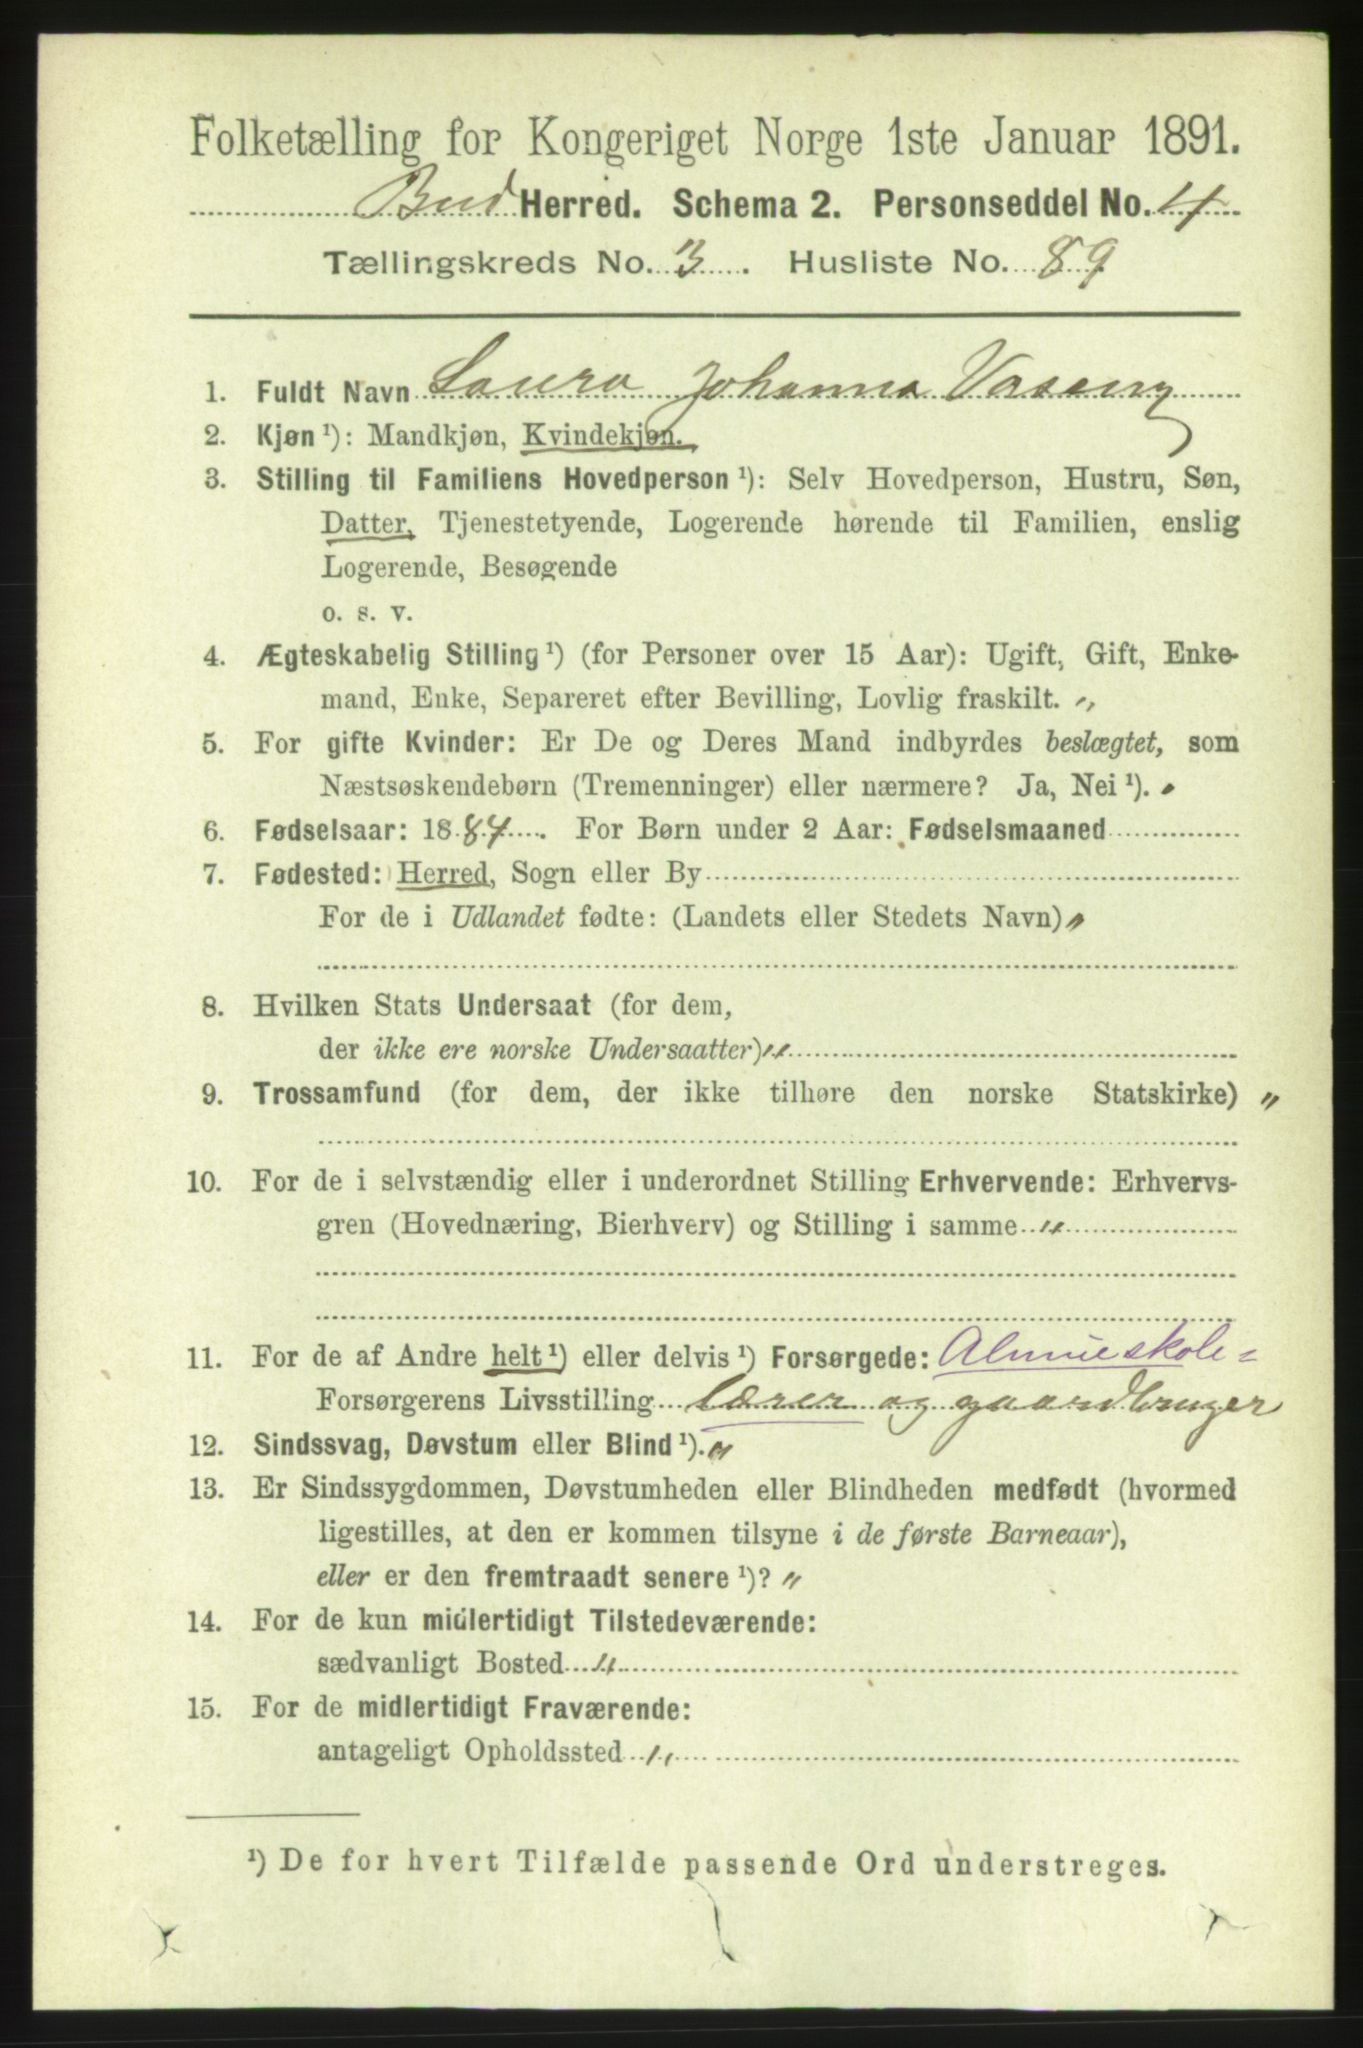 Folketælling for Kongeriget Norge 1ste Januar 1891.
Bud Herred. Schema 2. Personseddel No. 4
Tællingskreds No. 3. Husliste No. 89
1. Fuldt Navn Laura Johanna Vaseng
2. Kjøn ¹): Mandkjøn, Kvindekjøn.
3. Stilling til Familiens Hovedperson ¹): Selv Hovedperson, Hustru, Søn,
Datter, Tjenestetyende, Logerende hørende til Familien, enslig
Logerende, Besøgende
o. s. v.
4. Ægteskabelig Stilling ¹) (for Personer over 15 Aar): Ugift, Gift, Enke-
mand, Enke, Separeret efter Bevilling, Lovlig fraskilt. „
5. For gifte Kvinder: Er De og Deres Mand indbyrdes beslægtet, som
Næstsøskendebørn (Tremenninger) eller nærmere? Ja, Nei ¹). „
6. Fødselsaar: 1884. For Børn under 2 Aar: Fødselsmaaned
7. Fødested: Herred, Sogn eller By
For de i Udlandet fødte: (Landets eller Stedets Navn) „
8. Hvilken Stats Undersaat (for dem,
der ikke ere norske Undersaatter) „
9. Trossamfund (for dem, der ikke tilhøre den norske Statskirke) „
10. For de i selvstændig eller i underordnet Stilling Erhvervende: Erhvervs-
gren (Hovednæring, Bierhverv) og Stilling i samme „
11. For de af Andre helt ¹) eller delvis ¹) Forsørgede: Almueskole=
Forsørgerens Livsstilling lærer og gaardbruger
12. Sindssvag, Døvstum eller Blind ¹). „
13. Er Sindssygdommen, Døvstumheden eller Blindheden medfødt (hvormed
ligestilles, at den er kommen tilsyne i de første Barneaar),
eller er den fremtraadt senere ¹)? „
14. For de kun midlertidigt Tilstedeværende:
sædvanligt Bosted „
15. For de midlertidigt Fraværende:
antageligt Opholdssted „
¹) De for hvert Tilfælde passende Ord understreges.